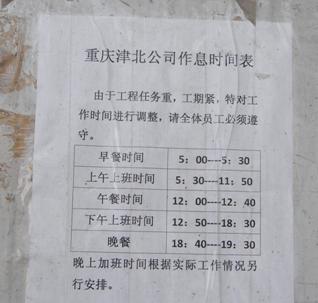 重庆津北公司作息时间表
由于工程任务重，工期紧，特对工
作时间进行调整，请全体员工必须遵
守。
早餐时间 5：00----5：30
上午上班时间 5：30----11：50
午餐时间 12：00----12：40
下午上班时间 12：50----18：30
晚餐 18：40----19：30
晚上加班时间根据实际工作情况另
行安排。